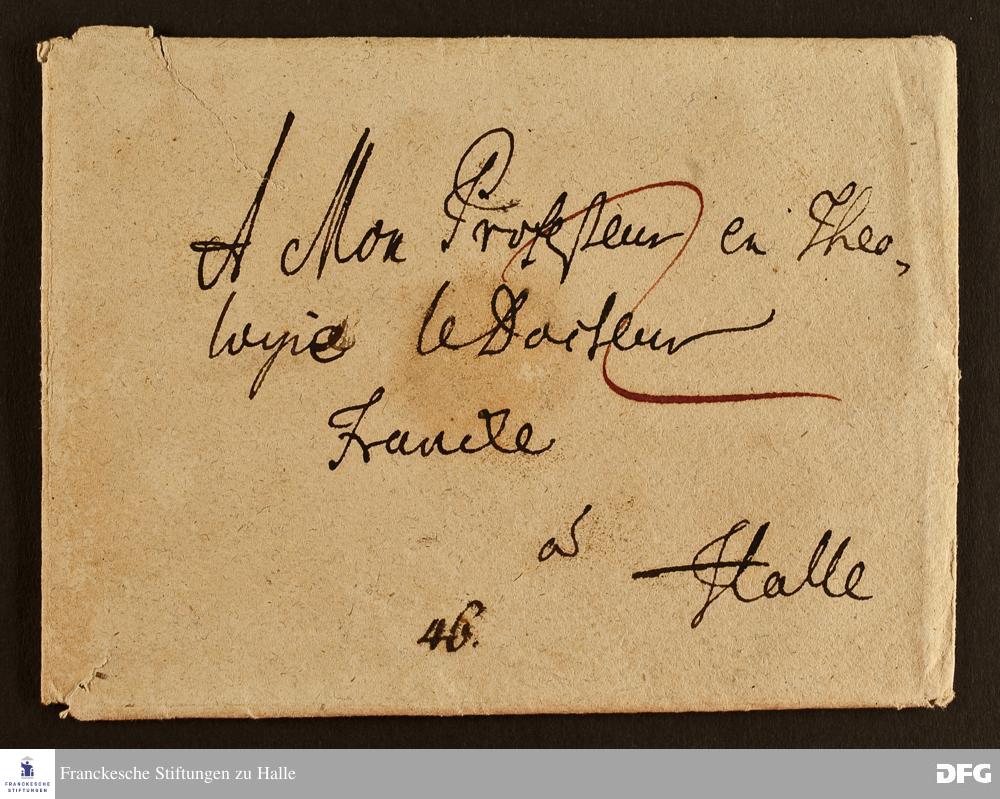 A Mon Professeur en Theo-
logie le Docteur
Francke
a
Halle
46.
FRANCKESCHE
STIFTUNGEN
Franckesche Stiftungen zu Halle
DFG